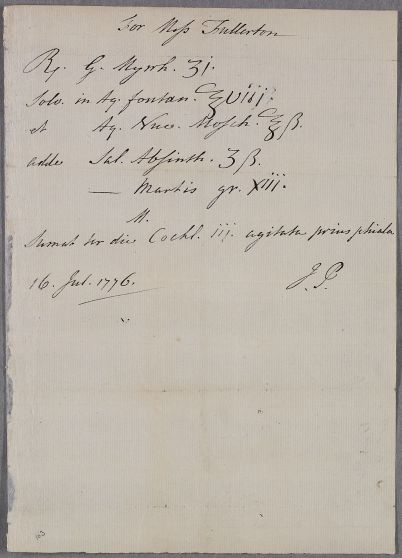 For Miss Fullerton
℞. G. Myrrh. ʒj.
Solv. in Aq. fontan. ℥viij.
et Aq. Nuc. Mosch. ℥ß.
adde Sal. Absinth. ʒß.
— Martis gr. xiii.
M.
Sumat ter die Cochl. iii. agitata prius phiala
16. Jul. 1776. J. P.
103